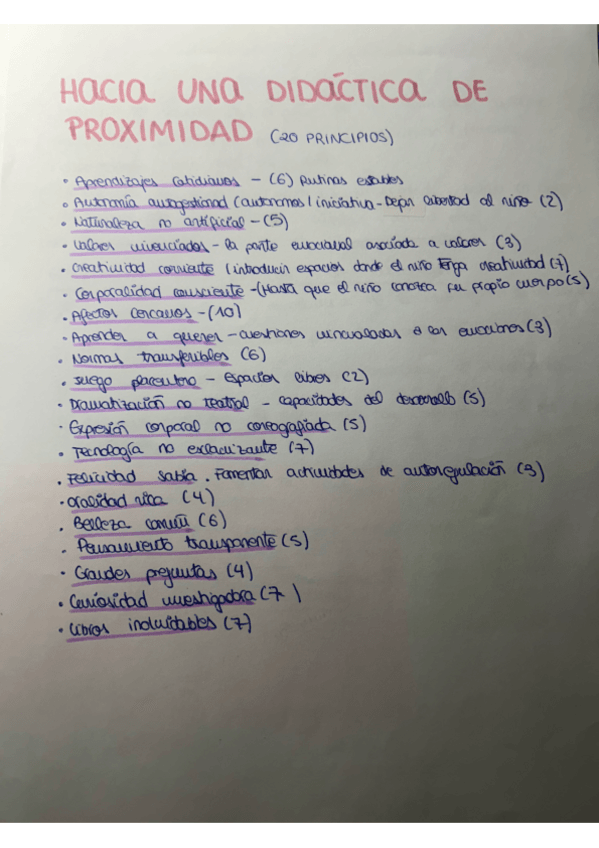 HACIA UNA DIDÁCTICA DE
PROXIMIDAD (20 PRINCIPIOS)
• Aprendizajes cotidianos - (6) Rutinas estables
• Autonomía autogestional (autonomos / iniciativa - Dejar libertad al niño (2)
• Naturaleza no artificial - (5)
• Valores vivenciados - la parte emocional asociada a valores (3)
• Creatividad corriente (introducir espacios donde el niño tenga creatividad (7)
• Corporalidad consciente - (Hasta que el niño conozca su propio cuerpo (5)
• Afectos cercanos - (10)
• Aprender a querer - cuestiones vinculadas a las emociones (3)
• Normas transferibles (6)
• Juego placentero - Espacios libres (2)
• Dramatización no teatral - capacidades del desarrollo (5)
• Expresión corporal no coreografiada (5)
• Tecnología no esclavizante (7)
• Felicidad sabia. Fomentar actividades de autorregulación (3)
• Oralidad viva (4)
• Belleza común (6)
• Pensamiento transparente (5)
• Grandes preguntas (4)
• Curiosidad investigadora (7)
• Libros inolvidables (7)